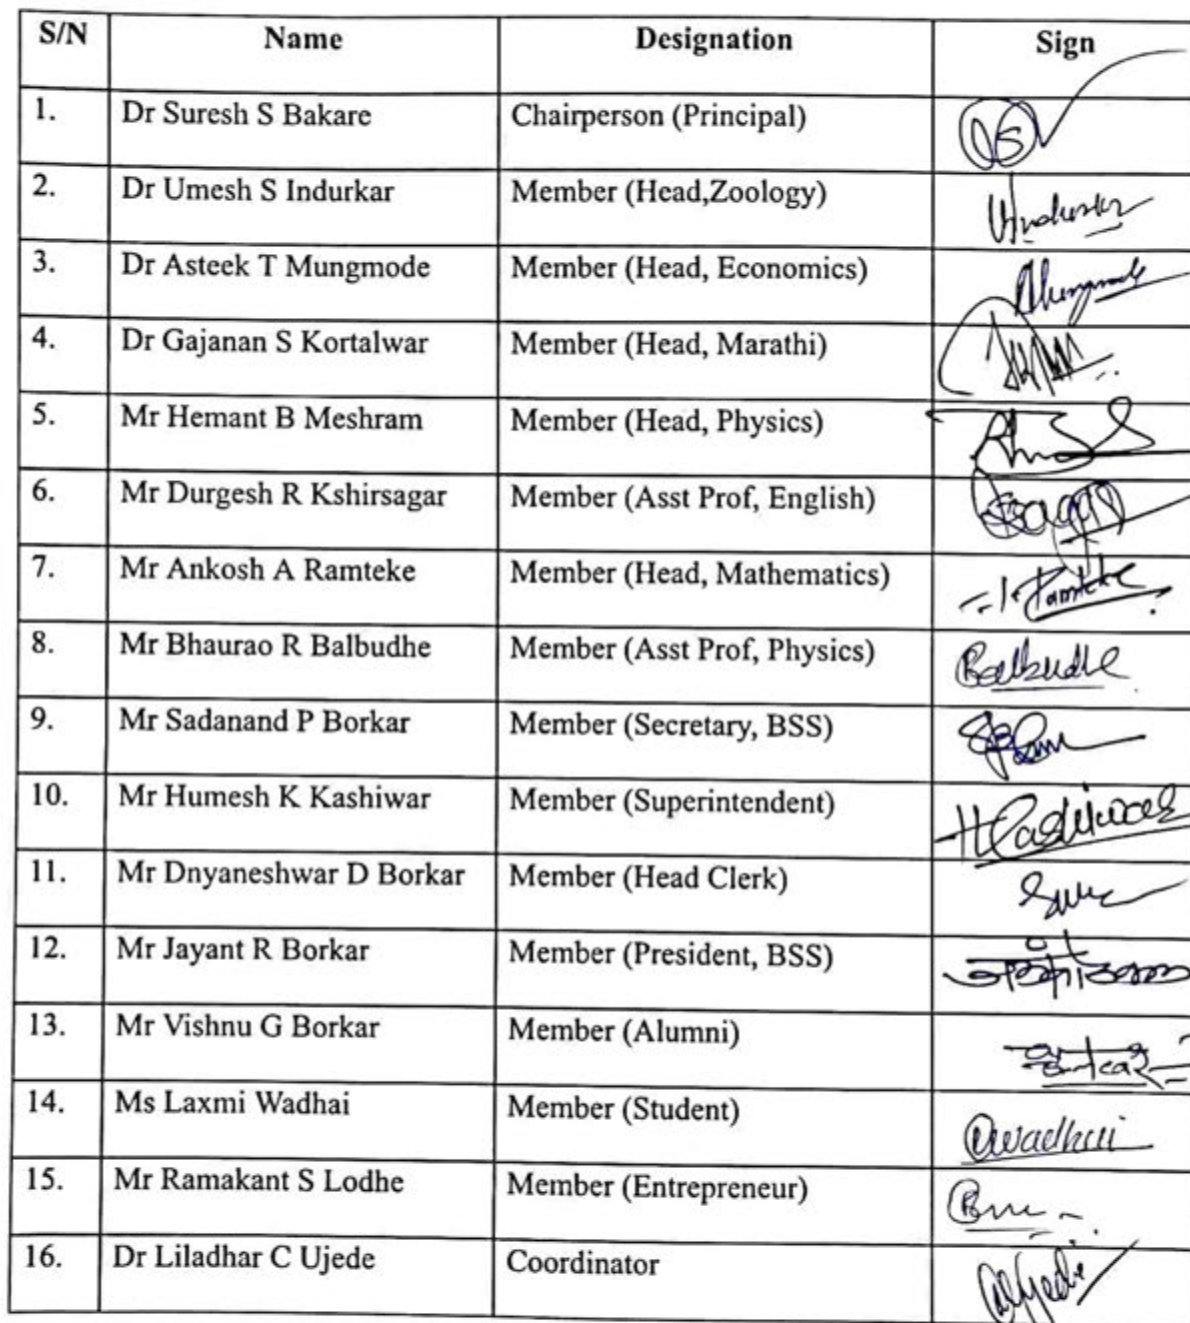 S/N Name Designation Sign
1. Dr Suresh S Bakare Chairperson (Principal)
2. Dr Umesh S Indurkar Member (Head,Zoology) Uindurkar
3. Dr Asteek T Mungmode Member (Head, Economics) Mungmode
4. Dr Gajanan S Kortalwar Member (Head, Marathi)
5. Mr Hemant B Meshram Member (Head, Physics)
6. Mr Durgesh R Kshirsagar Member (Asst Prof, English)
7. Mr Ankosh A Ramteke Member (Head, Mathematics) Ramteke
8. Mr Bhaurao R Balbudhe Member (Asst Prof, Physics) Balbudhe
9. Mr Sadanand P Borkar Member (Secretary, BSS)
10. Mr Humesh K Kashiwar Member (Superintendent) HKashiwar
11. Mr Dnyaneshwar D Borkar Member (Head Clerk)
12. Mr Jayant R Borkar Member (President, BSS)
13. Mr Vishnu G Borkar Member (Alumni)
14. Ms Laxmi Wadhai Member (Student) Wadhai
15. Mr Ramakant S Lodhe Member (Entrepreneur)
16. Dr Liladhar C Ujede Coordinator